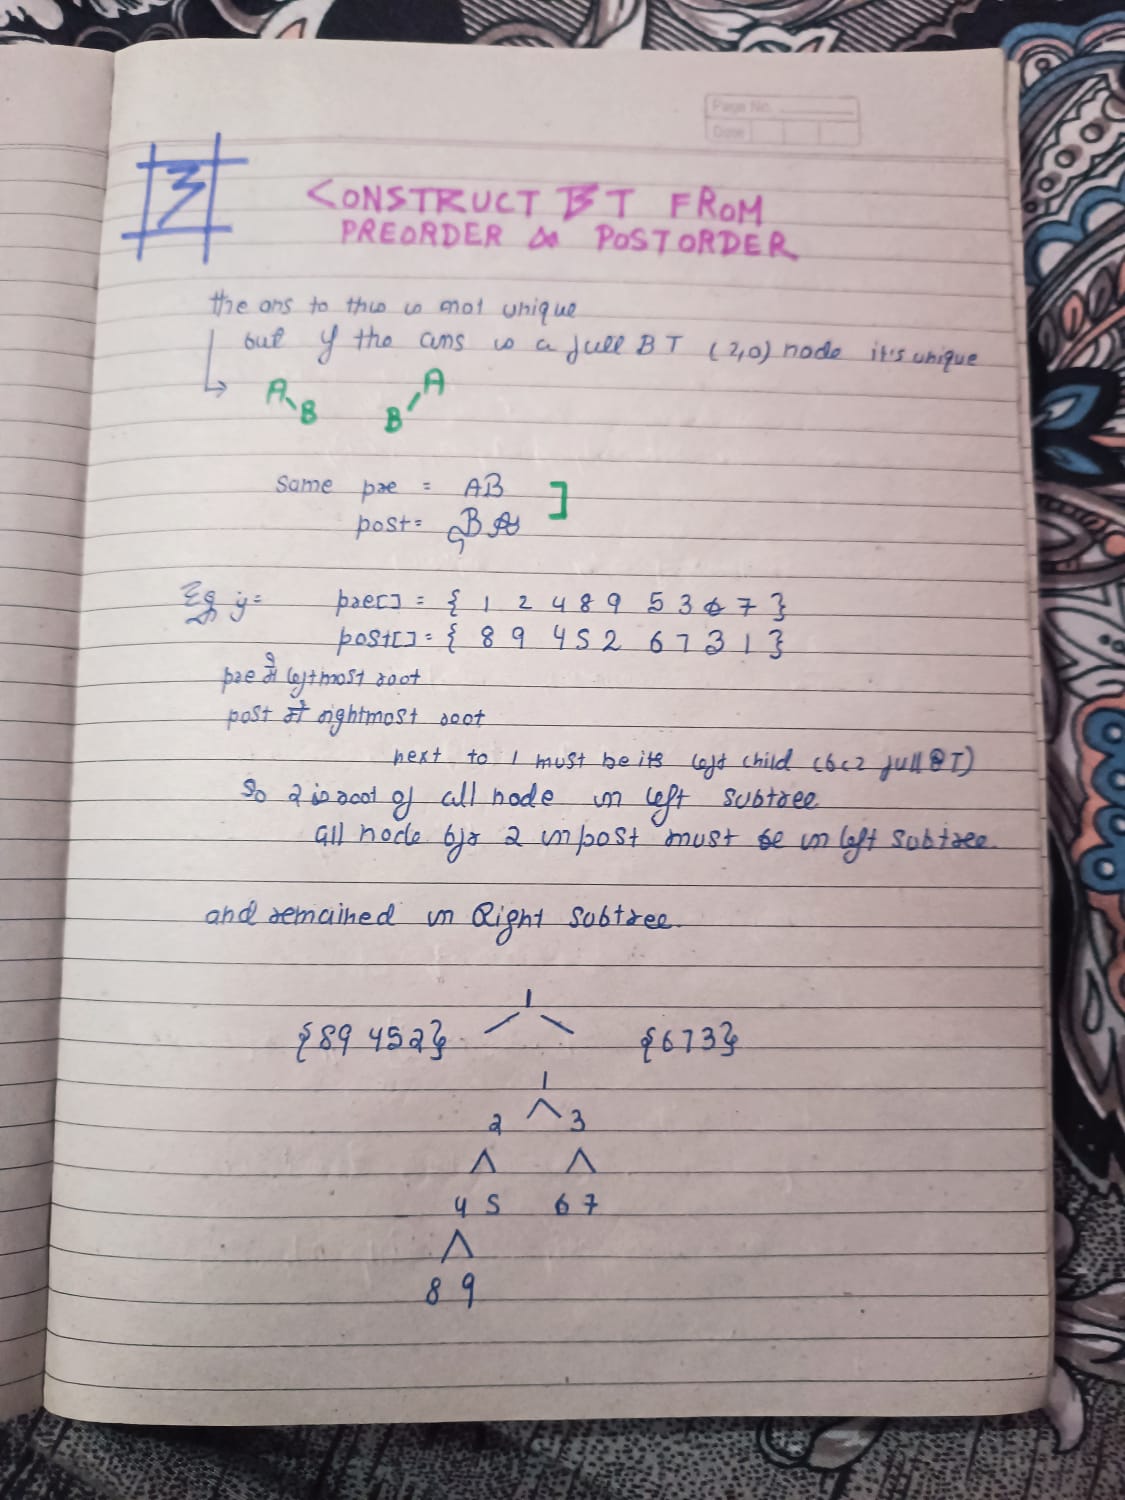 Page No.
Date
3
CONSTRUCT BT FROM
PREORDER & POSTORDER
the ans to this is not unique
but if the ans is a full BT (2,0) node it's unique
A B A B
Same pre = AB
post = BA
Eg if = pre[] = { 1 2 4 8 9 5 3 6 7 }
post[] = { 8 9 4 5 2 6 7 3 1 }
pre में leftmost root
post में rightmost root
next to 1 must be its left child (bcz full BT)
So 2 is root of all node in left subtree
all node bfr 2 in post must be in left subtree.
and remained in Right subtree.
1
{89 452} {673}
1
2 3
4 5 6 7
8 9